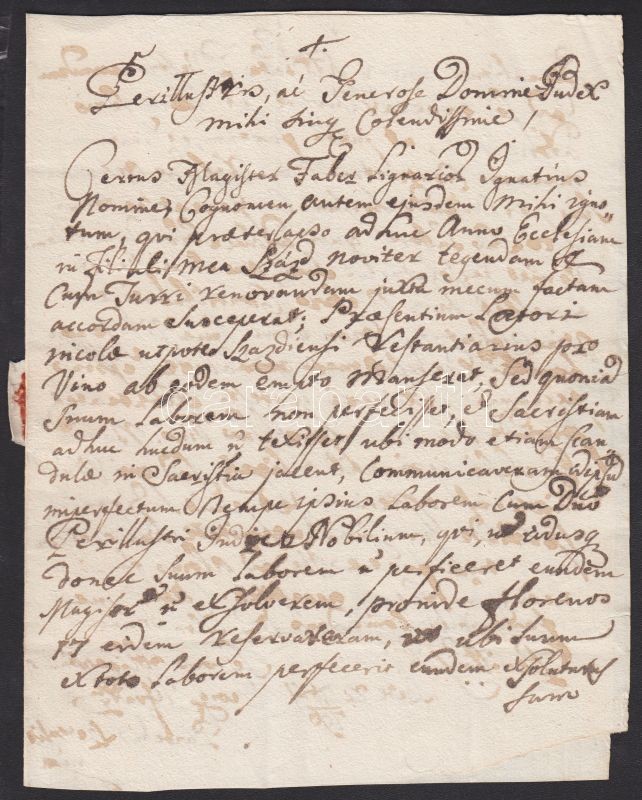 Perillustris, ac Generose Domine Judex
mihi sing Colendissime,
Certus Magister Faber Lignarios Ignatius
Nomine, Cognomen autem ejusdem mihi igno
tum, qui præterlapso adhuc Anno Ecclesiam
in Filiali mea Százd noviter tegendam et
Cum Turri renovandam juxta mecum factam
accordam Susceperat; Præsentium Latori
nicolæ utpote Szazdiensi restantiarius pro
Vino ab eodem empto Manserat, Sed quoniã
Suum Laborem non perfecisset, et Sacristiam
adhuc nudum texisset ubi modo etiam Scan
dulæ in Sacristia jacent, Communicaveram
imperfectum Nempe ipsius Laborem Cum Dno
Perillustri Judice Nobilium, qui, ut eidusq
donec Suum Laborem perficeret eundem
Magistrum exsolverem, proinde florenos
17 eidem reservaveram, ubi Suum
ex toto Laborem perfecerit eundem exsoluturus
Sum
darabanth